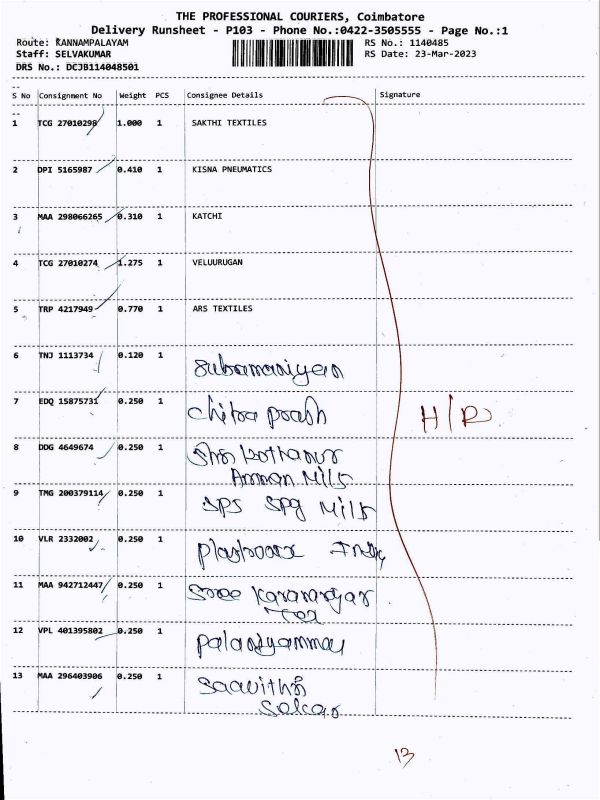 THE PROFESSIONAL COURIERS, Coimbatore
Delivery Runsheet - P103 - Phone No.:0422-3505555 - Page No.:1
Route: KANNAMPALAYAM RS No.: 1140485
Staff: SELVAKUMAR RS Date: 23-Mar-2023
DRS No.: DCJB114048501
S No Consignment No Weight PCS Consignee Details Signature
1 TCG 27010298 1.000 1 SAKTHI TEXTILES
2 DPI 5165987 0.410 1 KISNA PNEUMATICS
3 MAA 298066265 0.310 1 KATCHI
4 TCG 27010274 1.275 1 VELUURUGAN
5 TRP 4217949 0.770 1 ARS TEXTILES
6 TNJ 1113734 0.120 1 Subramaniyan
7 EDQ 15875731 0.250 1 chitra prash
H/R
8 DDG 4649674 0.250 1
Amman Mills
9 TMG 200379114 0.250 1 SPS spg Mills
10 VLR 2332002 0.250 1
11 MAA 942712447 0.250 1 Sree
Tex
12 VPL 401395802 0.250 1 palaniyammal
13 MAA 296403906 0.250 1 Saavithri
13